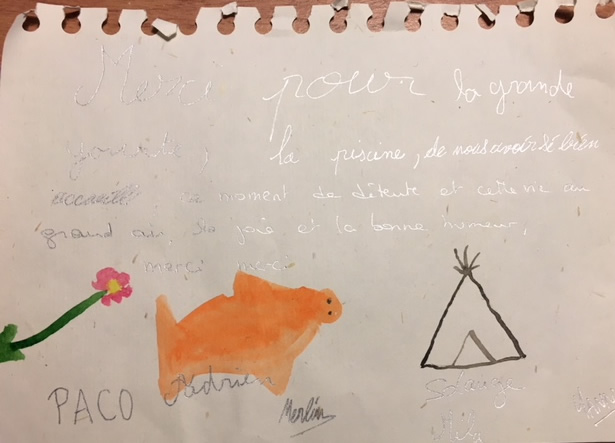 Merci pour la grande
la piscine, de nous avoir si bien
accueilli moment de détente et cette vie au
grand air, la joie et la bonne humeur,
merci merci
PACO Adrien Merlin Solange